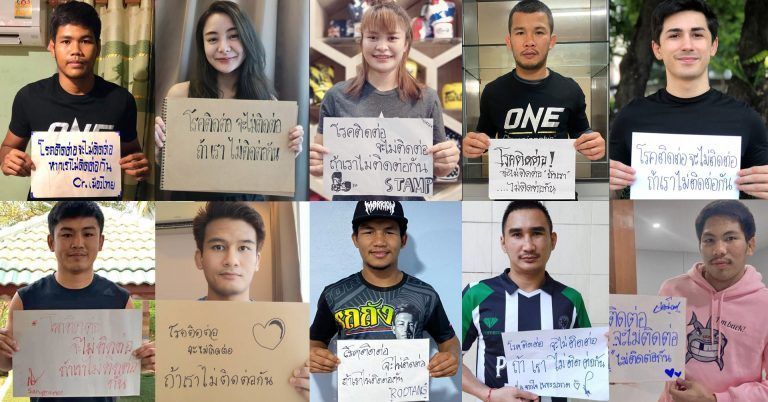 โรคติดต่อจะไม่ติดต่อ
หากเราไม่ติดต่อกัน
Cr. เมืองไทย
โรคติดต่อ จะไม่ติดต่อ
ถ้าเรา ไม่ติดต่อกัน
โรคติดต่อ
จะไม่ติดต่อ
ถ้าเราไม่ติดต่อกัน
STAMP
ONE
โรคติดต่อ!
จะไม่ติดต่อ ถ้าเรา
...ไม่ติดต่อกัน
โรคติดต่อ
จะไม่ติดต่อ
ถ้าเราไม่ติดต่อกัน
โรคติดต่อ
จะไม่ติดต่อ
ถ้าเราไม่ติดต่อกัน
โรคติดต่อ
จะไม่ติดต่อ
ถ้าเราไม่ติดต่อกัน
รถถัง
โรคติดต่อ
จะไม่ติดต่อ
ถ้าเราไม่ติดต่อกัน
RODTANG
โรคติดต่อ
จะไม่ติดต่อ
ถ้า เรา ไม่ ติดต่อกัน
I'm back!
ติดต่อ
จะไม่ติดต่อ
ไม่ติดต่อกัน